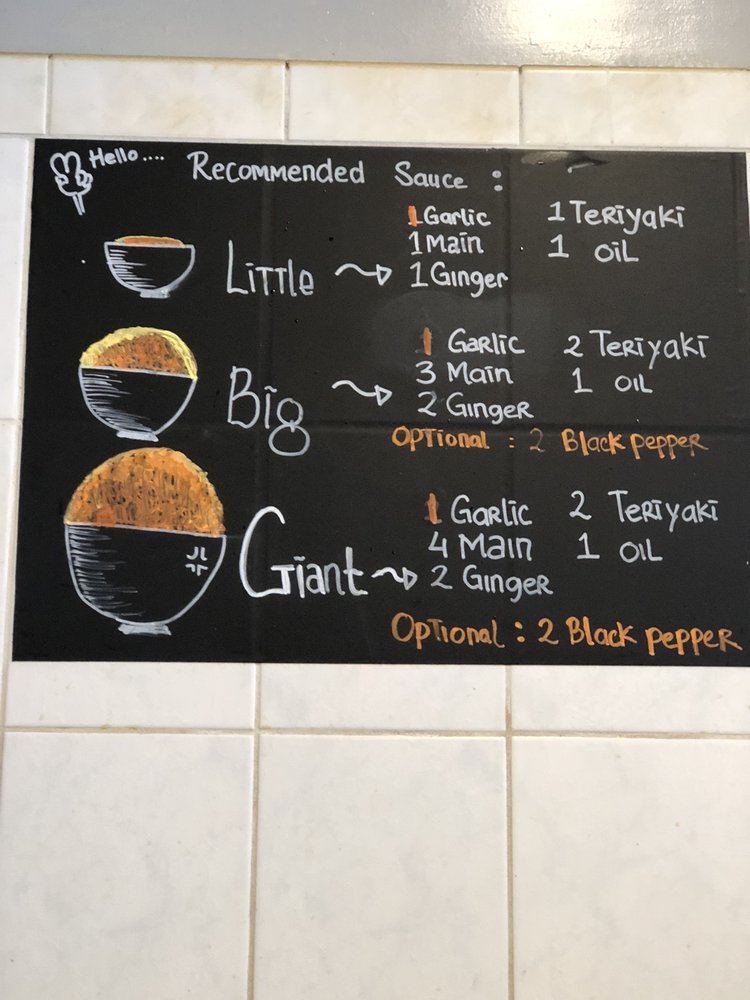 Hello....
Recommended Sauce :
Little
1 Garlic 1 Teriyaki
1 Main 1 oil
1 Ginger
Big
1 Garlic 2 Teriyaki
3 Main 1 oil
2 Ginger
Optional : 2 Black pepper
Giant
1 Garlic 2 Teriyaki
4 Main 1 oil
2 Ginger
Optional : 2 Black pepper